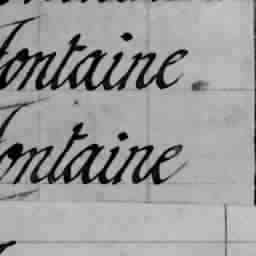 fontaine
fontaine